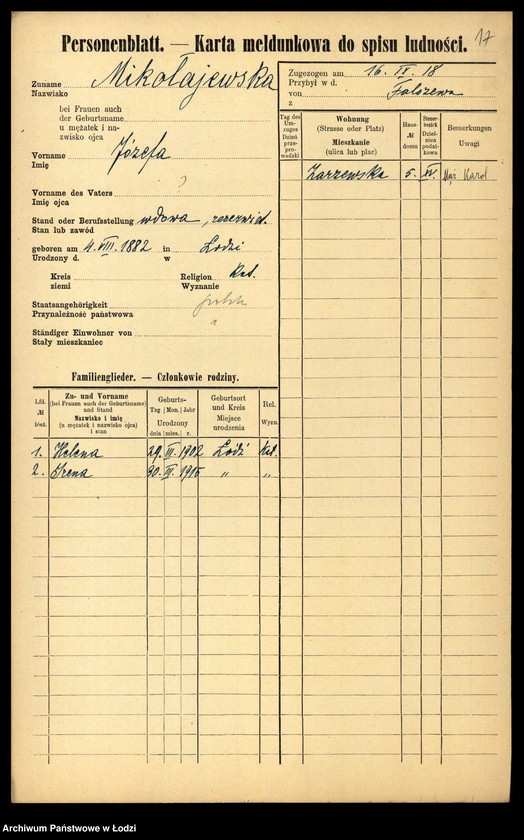 17
Personenblatt. — Karta meldunkowa do spisu ludności.
Zuname Mikołajewska
Nazwisko
bei Frauen auch
der Geburtsname
u mężatek i na-
zwisko ojca
Vorname Józefa
Imię
Vorname des Vaters ?
Imię ojca
Stand oder Berufsstellung wdowa, rezerwist.
Stan lub zawód
geboren am 4. VIII. 1882 in Łodzi
Urodzony d. w
Kreis Religion Kat.
ziemi Wyznanie
Staatsangehörigkeit
Przynależność państwowa
Ständiger Einwohner von
Stały mieszkaniec
Zugezogen am 16. IV. 18
Przybył w d.
von
z
Tag des Um-zuges Dzień prze-prowadzki
Wohnung
(Strasse oder Platz)
Mieszkanie
(ulica lub plac)
Haus-№ domu
Steuer-bezirk Dziel-nica podat-kowa
Bemerkungen
Uwagi
Zarzewska 5. XV. Mąż Karol
Familienglieder. — Członkowie rodziny.
Lfd. № bież.
Zu- und Vorname
(bei Frauen auch der Geburtsname)
und Stand
Nazwisko i imię
(u mężatek i nazwisko ojca)
i stan
Geburts-
Tag | Mon. | Jahr
Urodzony
dnia | mies. | r.
Geburtsort
und Kreis
Miejsce
urodzenia
Rel.
Wyzn.
1. Helena 29. III. 1902 Łódź Kat.
2. Irena 30. III. 1915 „ „
Archiwum Państwowe w Łodzi